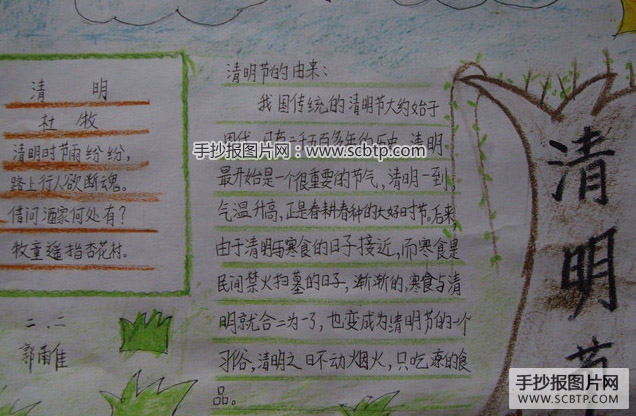 清 明
杜 牧
清明时节雨纷纷,
路上行人欲断魂。
借问酒家何处有?
牧童遥指杏花村。
二、二
清明节的由来:
我国传统的清明节大约始于
周代,已有二千五百多年的历史。清明
最开始是一个很重要的节气,清明一到,
气温升高,正是春耕春种的大好时节。后来,
由于清明与寒食的日子接近,而寒食是
民间禁火扫墓的日子,渐渐的,寒食与清
明就合二为一了,也变成为清明节的一个
习俗,清明之日不动烟火,只吃凉的食
品。
清明节
手抄报图片网:www.scbtp.com
手抄报图片网
WWW.SCBTP.COM